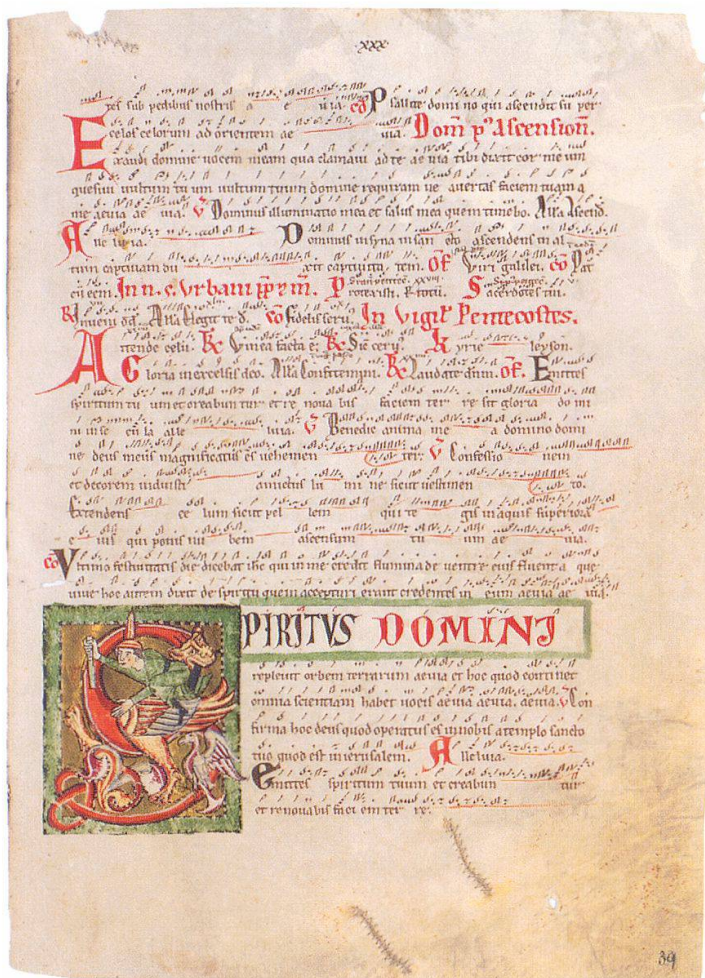 ·xxx·
tes sub pedibus uostris a e uia. cō Psallite domino qui ascendit super
celos celorum ad orientem ae uia. Dom̄ p' Ascension̄.
Exaudi domine uocem meam qua clamaui ad te ae uia tibi dixit cor meum
quesiui uultum tuum uultum tuum domine requiram ne auertas faciem tuam a
me aeuia ae uia. V̄ Dominus illuminatio mea et salus mea quem timebo. All'a Ascend.
Alleluia. Dominus insyna in sancto ascendens in al
tum captiuam du xit captiuita tem. OF Viri galilei. CO Pat
er cum eem. In n. s. Vrbani pp' et m̄. Protexisti. Sacerdotes tui.
R Inueni dd. All'a Elegit te d. CO Fidelis seru. In Vigil' Pentecostes.
Attende celū. Vinea facta ē. Sic ceru. Kyrie leyson.
Gloria in excelsis deo. All'a Confitemini. Laudate dnm. OF. Emittes
spiritum tuum et creabuntur et renouabis faciem terre sit gloria domi
ni in se cula alle luia. V̄ Benedic anima me a domino domi
ne deus meus magnificatus es uehemen ter. V̄ Confessio nem
et decorem induisti amictus lumine sicut uestimen to.
Extendens ce lum sicut pel lem qui te gis in aquis superiora
e ius qui ponis nu bem ascensum tu um ae uia.
CO Vltimo festiuitatis die dicebat ihc qui in me credit flumina de uentre eius fluent a que
uiue hoc autem dixit de spiritu quem accepturi erant credentes in eum aeuia ae uia.
SPIRITVS DOMINI
repleuit orbem terrarum aeuia et hoc quod continet
omnia scientiam habet uocis aeuia aeuia. aeuia. V̄ Con
firma hoc deus quod operatus es in nobis a templo sancto
tuo quod est in ierusalem. Alleluia.
Emittes spiritum tuum et creabun tur
et renouabis faciem ter re.
39